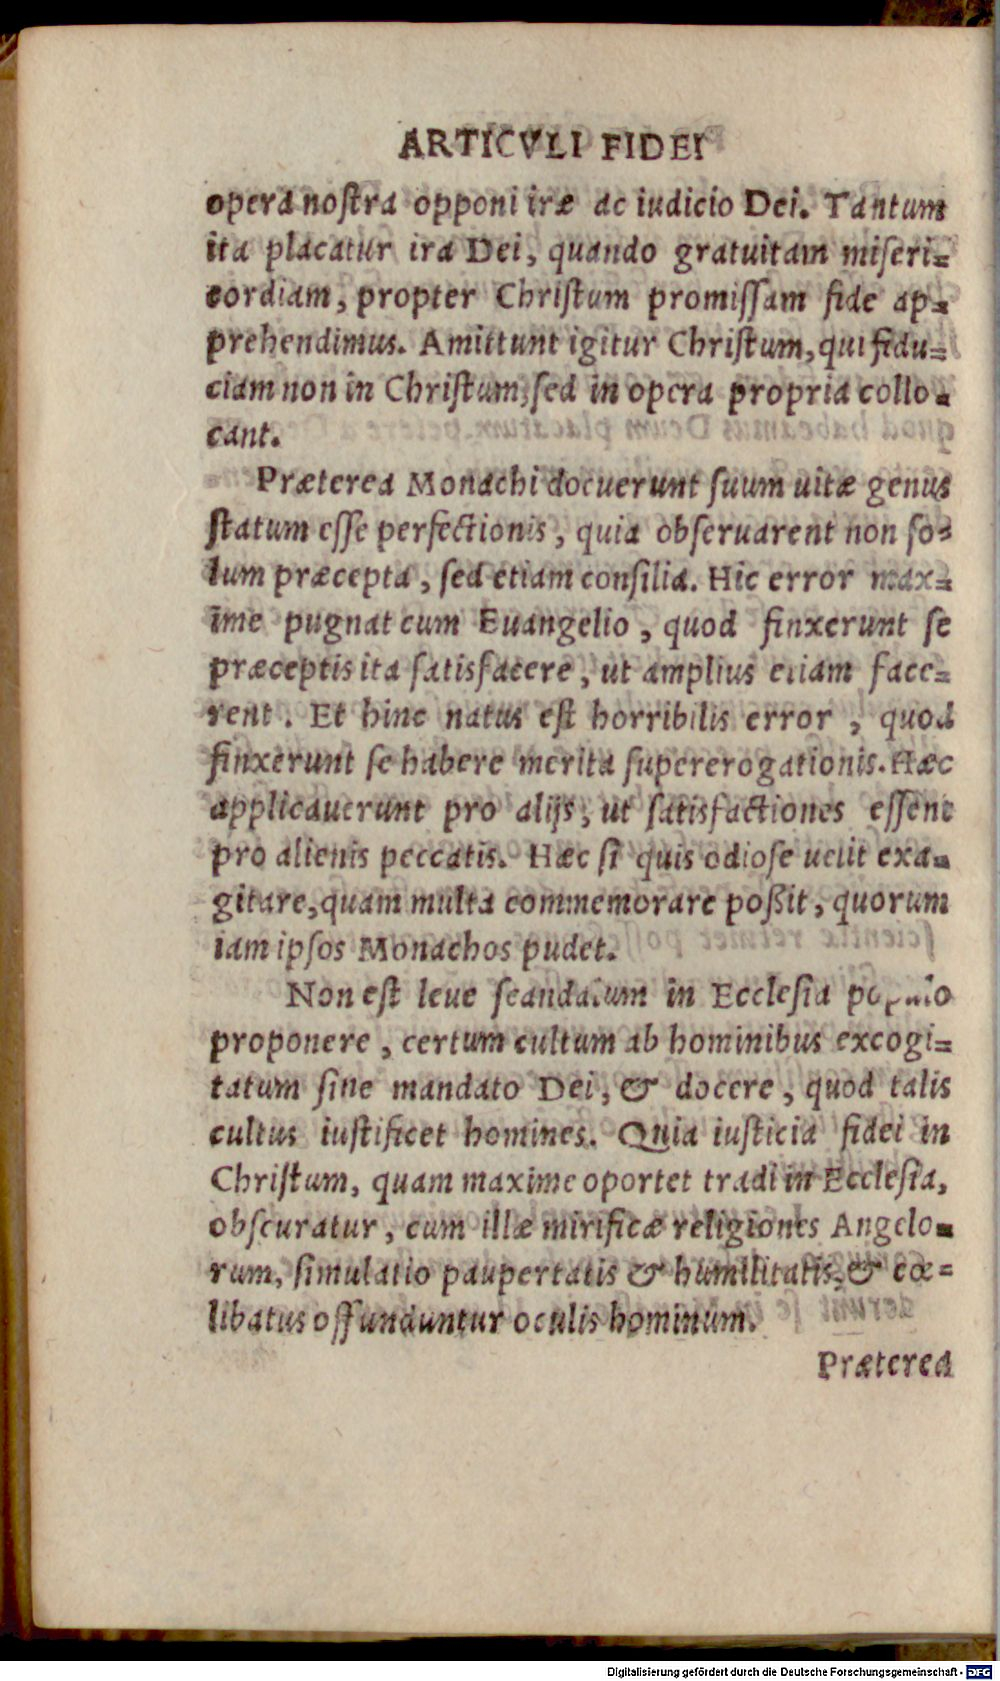 ARTICVLI FIDEI
opera noſtra opponi iræ ac iudicio Dei. Tantum
ita placatur ira Dei, quando gratuitam miſeri=
cordiam, propter Chriſtum promiſſam fide ap=
prehendimus. Amittunt igitur Chriſtum, qui fidu=
ciam non in Chriſtum, ſed in opera propria collo=
cant.
Præterea Monachi docuerunt ſuum uitæ genus
ſtatum eſſe perfectionis, quia obſeruarent non ſo=
lum præcepta, ſed etiam conſilia. Hic error max=
ime pugnat cum Euangelio, quod finxerunt ſe
præceptis ita ſatisfacere, ut amplius etiam face=
rent. Et hinc natus eſt horribilis error, quod
finxerunt ſe habere merita ſupererogationis. Hæc
applicauerunt pro alijs, ut ſatisfactiones eſſent
pro alienis peccatis. Hæc ſi quis odioſe uelit exa=
gitare, quam multa commemorare poßit, quorum
iam ipſos Monachos pudet.
Non eſt leue ſcandalum in Eccleſia populo
proponere, certum cultum ab hominibus excogi=
tatum ſine mandato Dei, & docere, quod talis
cultus iuſtificet homines. Quia iuſticia fidei in
Chriſtum, quam maxime oportet tradi in Eccleſia,
obſcuratur, cum illæ mirificæ religiones Angelo=
rum, ſimulatio paupertatis & humilitatis, & cœ=
libatus offunduntur oculis hominum.
Præterea
Digitalisierung gefördert durch die Deutsche Forschungsgemeinschaft - DFG